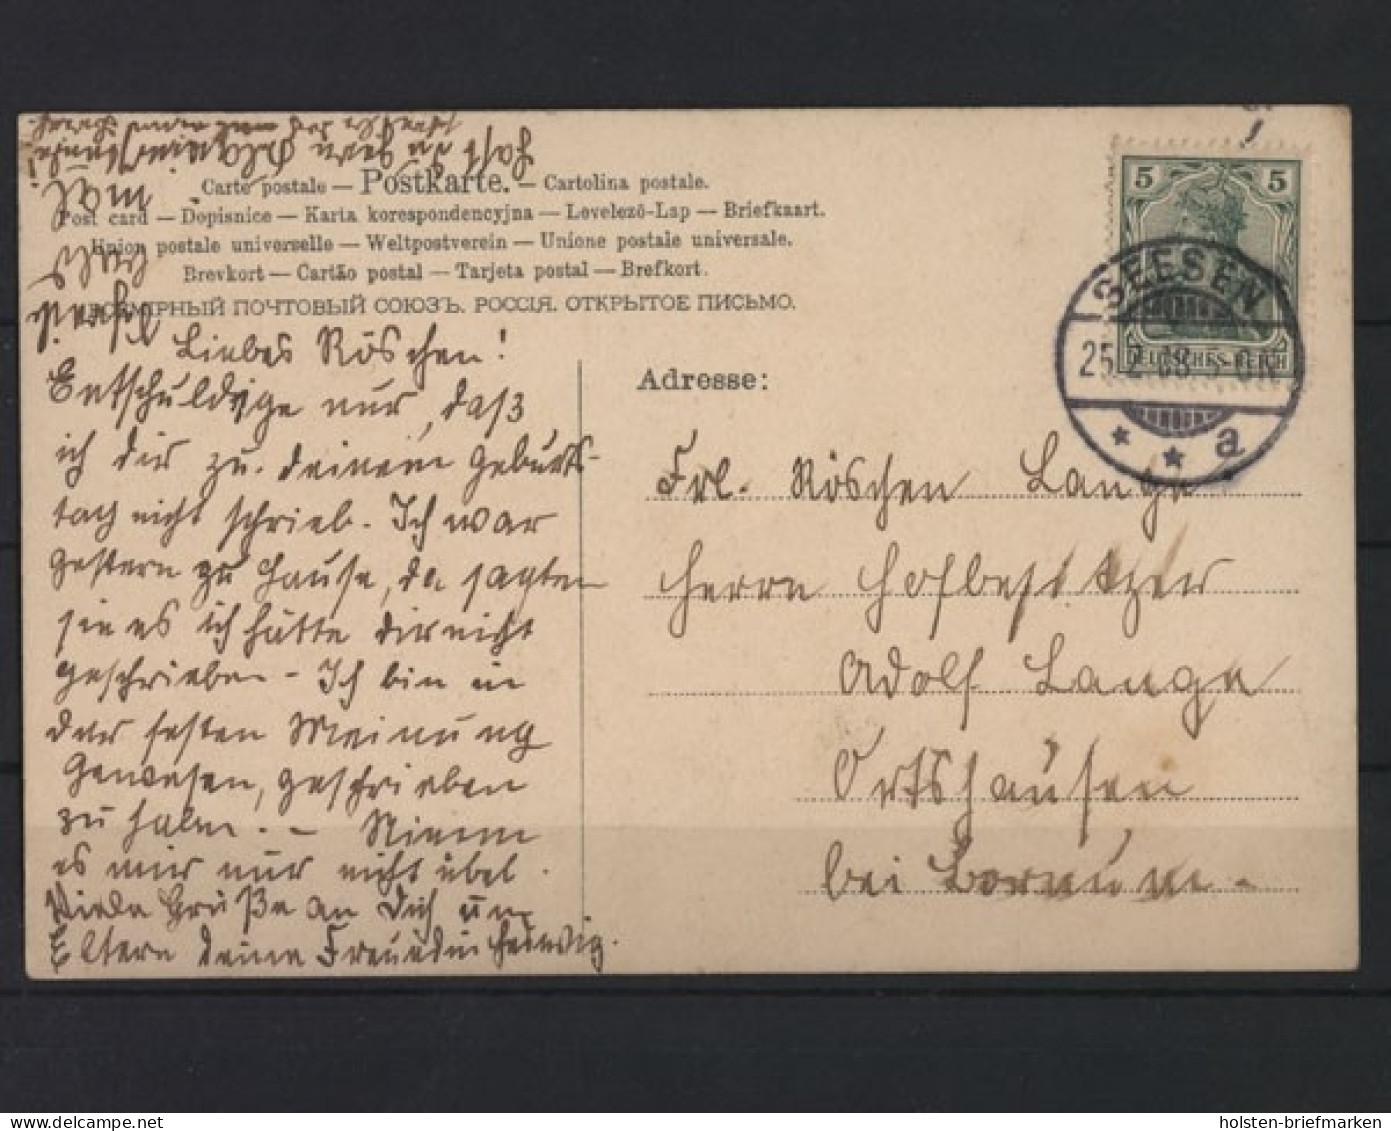 Carte postale — Postkarte. — Cartolina postale.
Post card — Dopisnice — Karta korespondencyjna — Levelező-Lap — Briefkaart.
Union postale universelle — Weltpostverein — Unione postale universale.
Brevkort — Cartão postal — Tarjeta postal — Brefkort.
ВСЕМІРНЫЙ ПОЧТОВЫЙ СОЮЗЪ. РОССІЯ. ОТКРЫТОЕ ПИСЬМО.
Liebes Röschen!
Entschuldige nur, daß
ich dir zu deinem Geburts-
tag nicht schrieb. Ich war
gestern zu Hause, da sagten
sie es ich hätte dir nicht
geschrieben - Ich bin in
der festen Meinung
gewesen, geschrieben
zu haben. - Nimm
es mir nur nicht übel.
Viele Grüße an Dich und
Eltern deine Freundin Hedwig.
Schreib
bald
mal
hast du denn
Adresse:
Frl. Röschen Lange
Herrn Hofbesitzer
Adolf Lange
Ortshausen
bei Bornum.
5 5
DEUTSCHES REICH
SEESEN
25
a
holsten-briefmarken